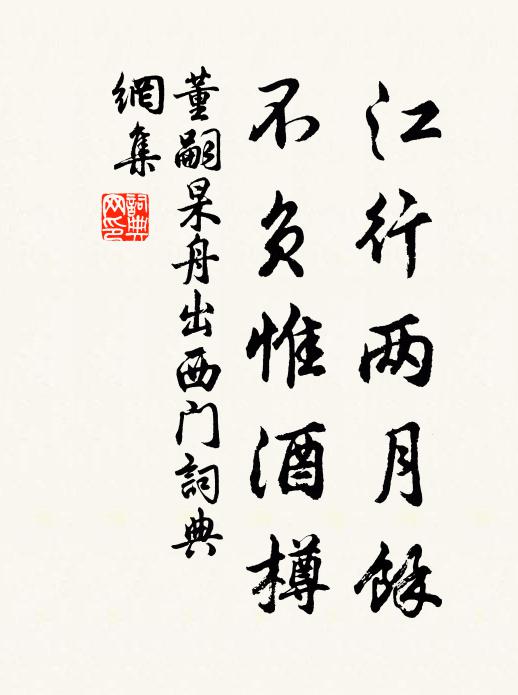 江行两月餘
不负惟酒樽
董嗣杲舟出西门詞典
網集
詞典
网印